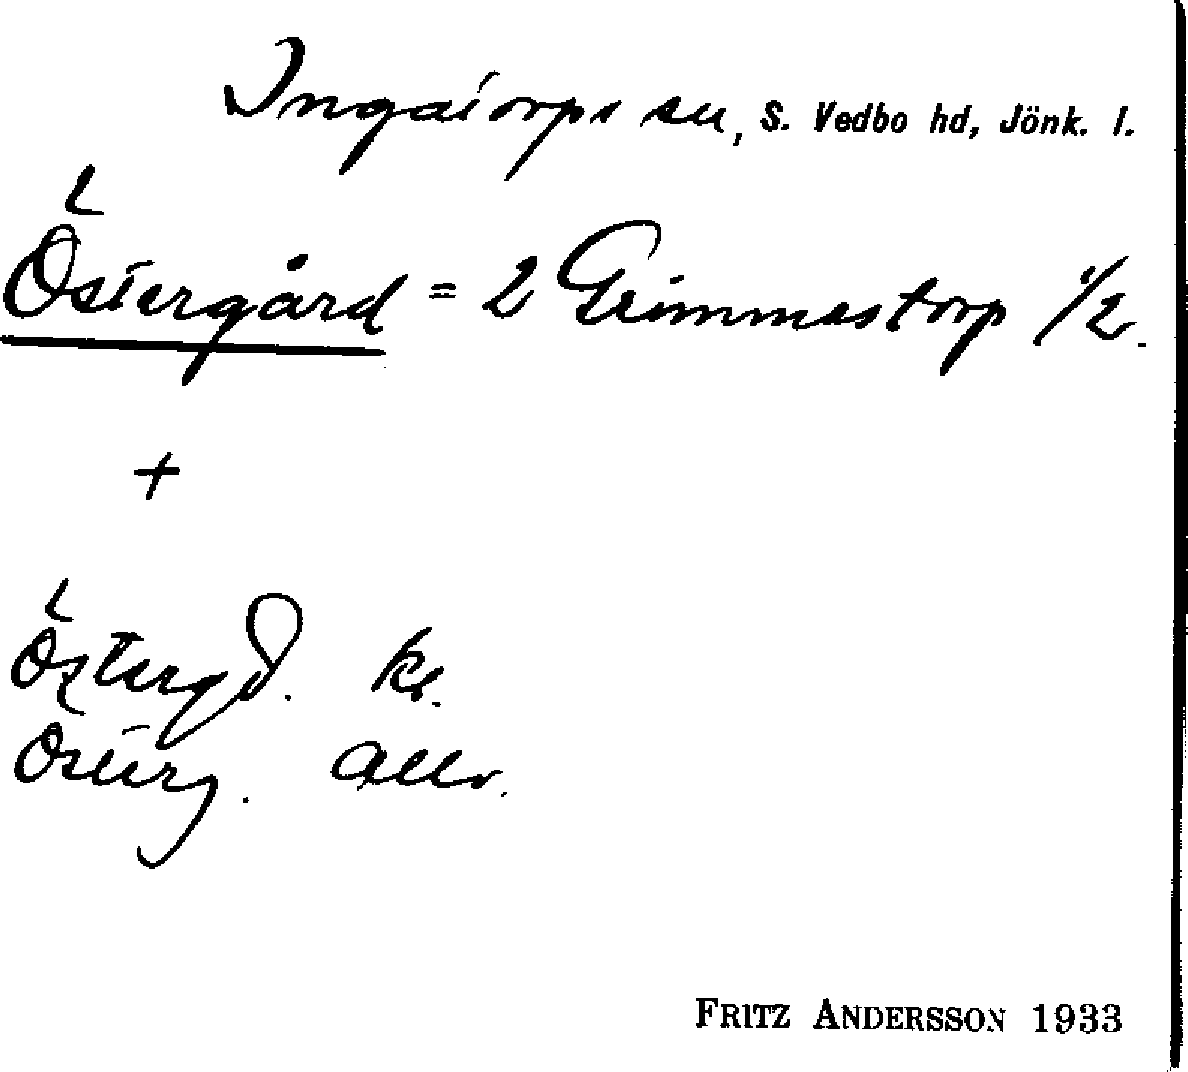 Ingatorps sn, S. Vedbo hd, Jönk. l.
Östergård = 2 Grimmestorp 1/2.
+
Östergd. kr.
Österg. Allm.
FRITZ ANDERSSON 1933